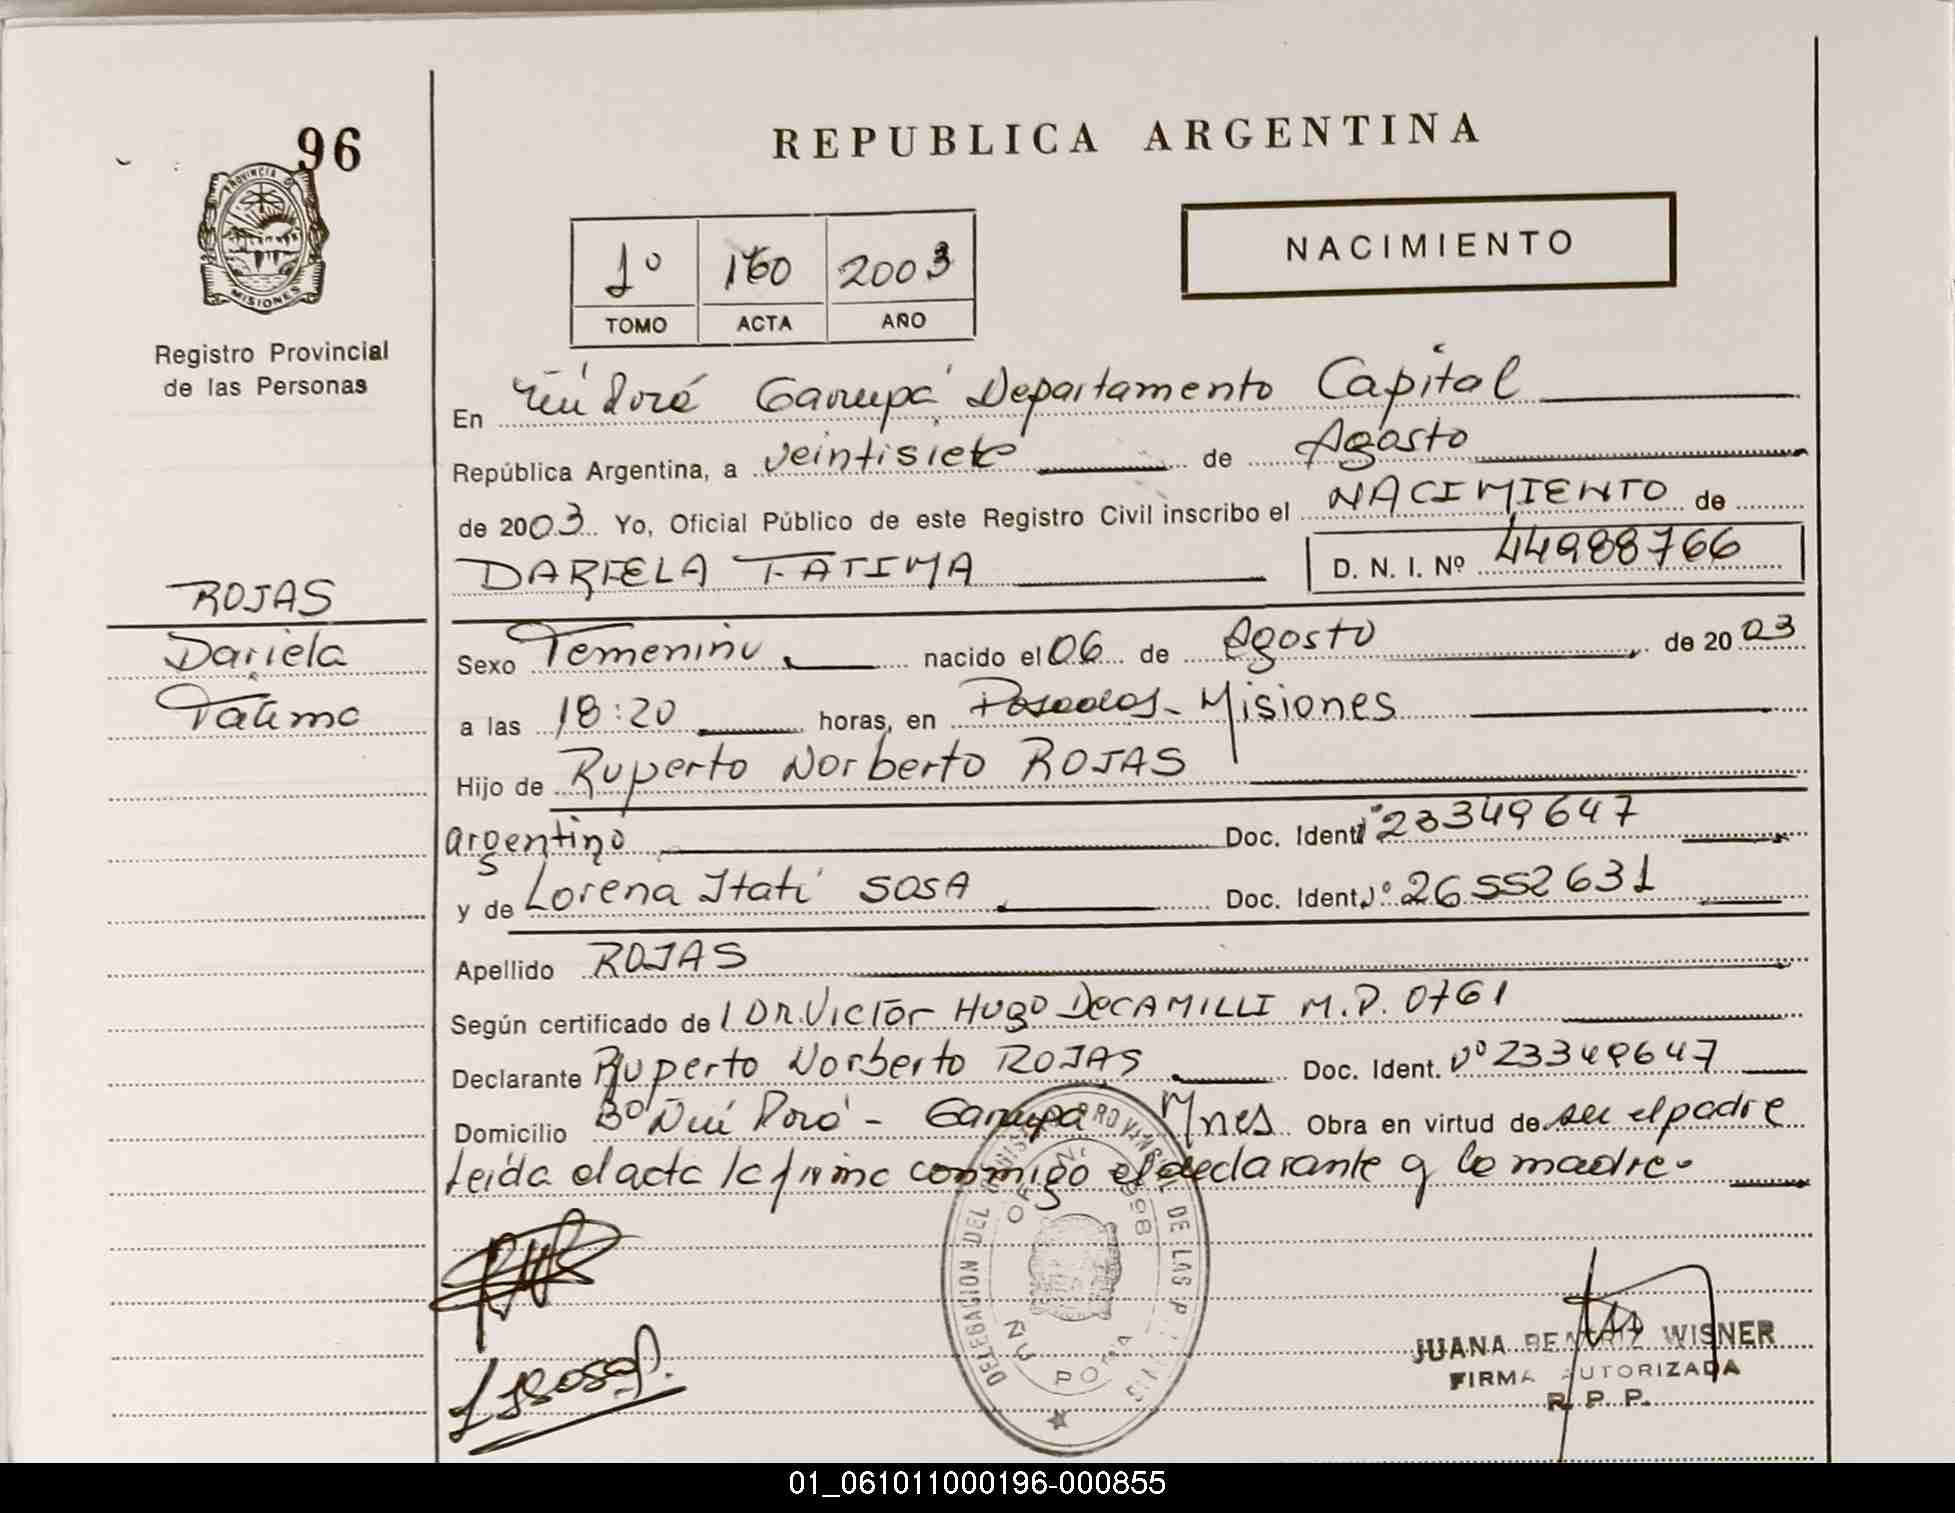 96
PROVINCIA DE
MISIONES
Registro Provincial
de las Personas
ROJAS
Dariela
Fatima
REPUBLICA ARGENTINA
1º 160 2003
TOMO ACTA AÑO
NACIMIENTO
En Ñú Porá Garupá Departamento Capital
República Argentina, a veintisiete de Agosto
de 2003 Yo, Oficial Público de este Registro Civil inscribo el NACIMIENTO de
DARIELA FATIMA D. N. I. Nº 44988766
Sexo Femenino nacido el 06 de Agosto de 2003
a las 18:20 horas, en Posadas - Misiones
Hijo de Ruperto Norberto ROJAS
argentino Doc. Ident. Nº 23349647
y de Lorena Itatí SOSA Doc. Ident. Nº 26552631
Apellido ROJAS
Según certificado de l DR. VICTOR HUGO DECAMILLI M.P. 0761
Declarante Ruperto Norberto ROJAS Doc. Ident. Nº 23349647
Domicilio Bº Ñuú Porá - Garupá Mnes Obra en virtud de ser el padre
Leída el acta la firma conmigo el declarante y la madre.
DELEGACION DEL REGISTRO PROVINCIAL DE LAS
ÑU PORA
JUANA BEATRIZ WISNER
FIRMA AUTORIZADA
R. P. P.
01_061011000196-000855